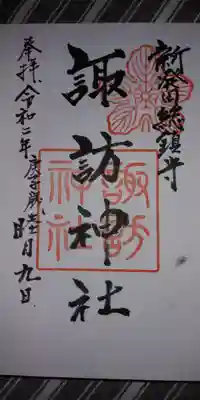 新発田総鎮守
諏訪神社
諏訪
神社
奉拝 令和二年 庚子歳 月九日